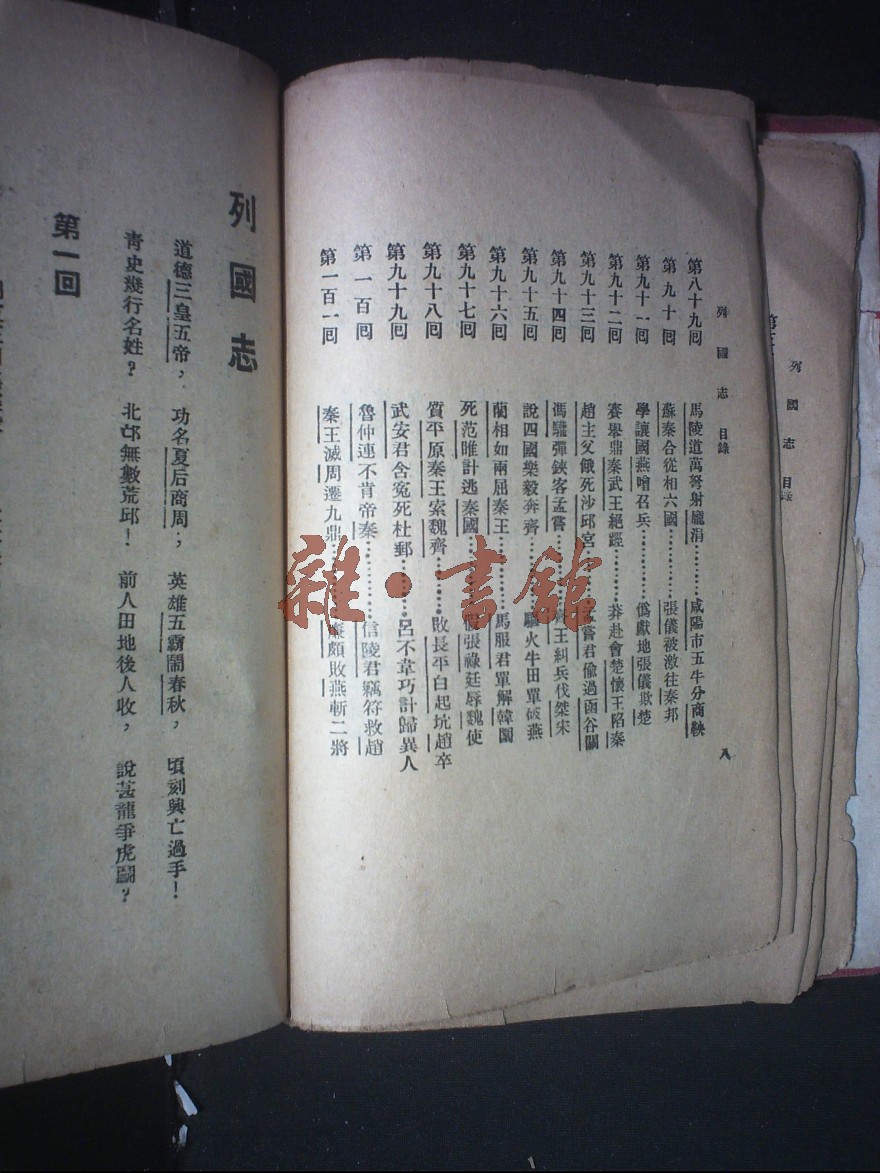 列國志 目錄
列國志 目錄 八
第八十九回 馬陵道萬弩射龐涓 咸陽市五牛分商鞅
第九十回 蘇秦合從相六國………張儀被激往秦邦
第九十一回 學讓國燕噲召兵………僞獻地張儀欺楚
第九十二回 賽舉鼎秦武王絕脛………莽赴會楚懷王陷秦
第九十三回 趙主父餓死沙邱宮………孟嘗君偷過函谷關
第九十四回 馮驩彈鋏客孟嘗………齊王糾兵伐桀宋
第九十五回 說四國樂毅奔齊………驅火牛田單破燕
第九十六回 藺相如兩屈秦王………馬服君單解韓圍
第九十七回 死范睢計逃秦國………假張祿廷辱魏使
第九十八回 質平原秦王索魏齊………敗長平白起坑趙卒
第九十九回 武安君含冤死杜郵………呂不韋巧計歸異人
第一百回 魯仲連不肯帝秦………信陵君竊符救趙
第一百一回 秦王滅周遷九鼎………廉頗敗燕斬二將
列國志
道德三皇五帝，功名夏后商周；英雄五霸鬧春秋，頃刻興亡過手！
青史幾行名姓？北邙無數荒邱！前人田地後人收，說甚龍爭虎鬭？
第一回
雜·書館